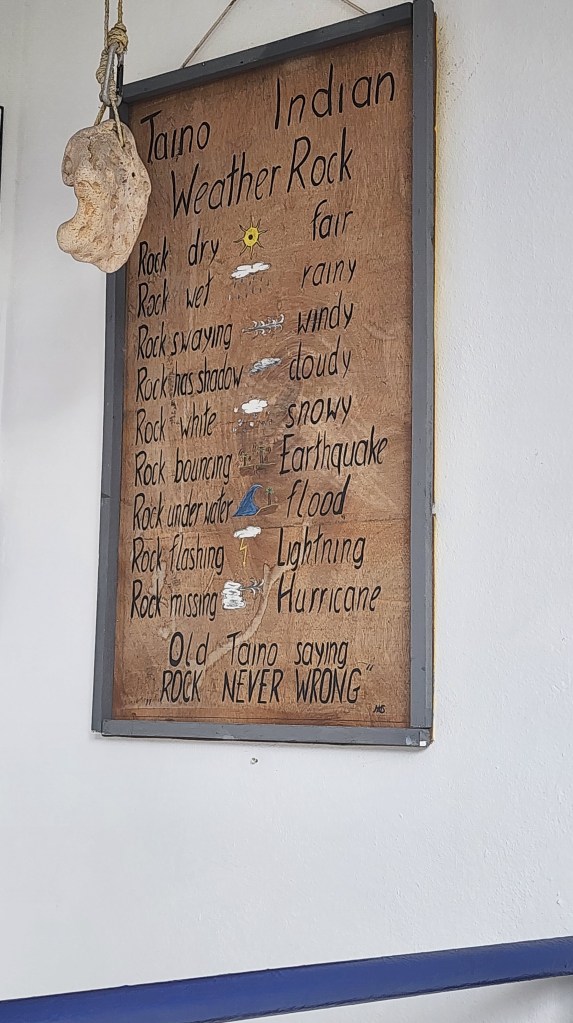 Taino Indian
Weather Rock
Rock dry fair
Rock wet rainy
Rock swaying windy
Rock has shadow cloudy
Rock white snowy
Rock bouncing Earthquake
Rock under water flood
Rock flashing Lightning
Rock missing Hurricane
Old Taino saying
„ROCK NEVER WRONG“